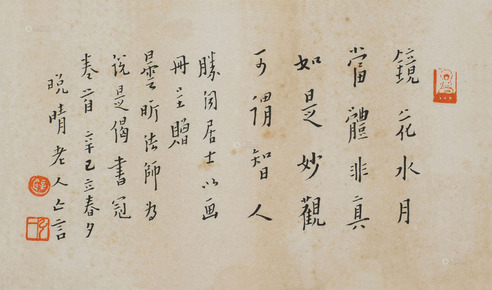 鏡花水月
當體非真
如是妙觀
可謂智人
勝居士以画
冊呈贈
曇昕法師為
說是偈書冠
卷首辛巳立春夕
晚晴老人亡言